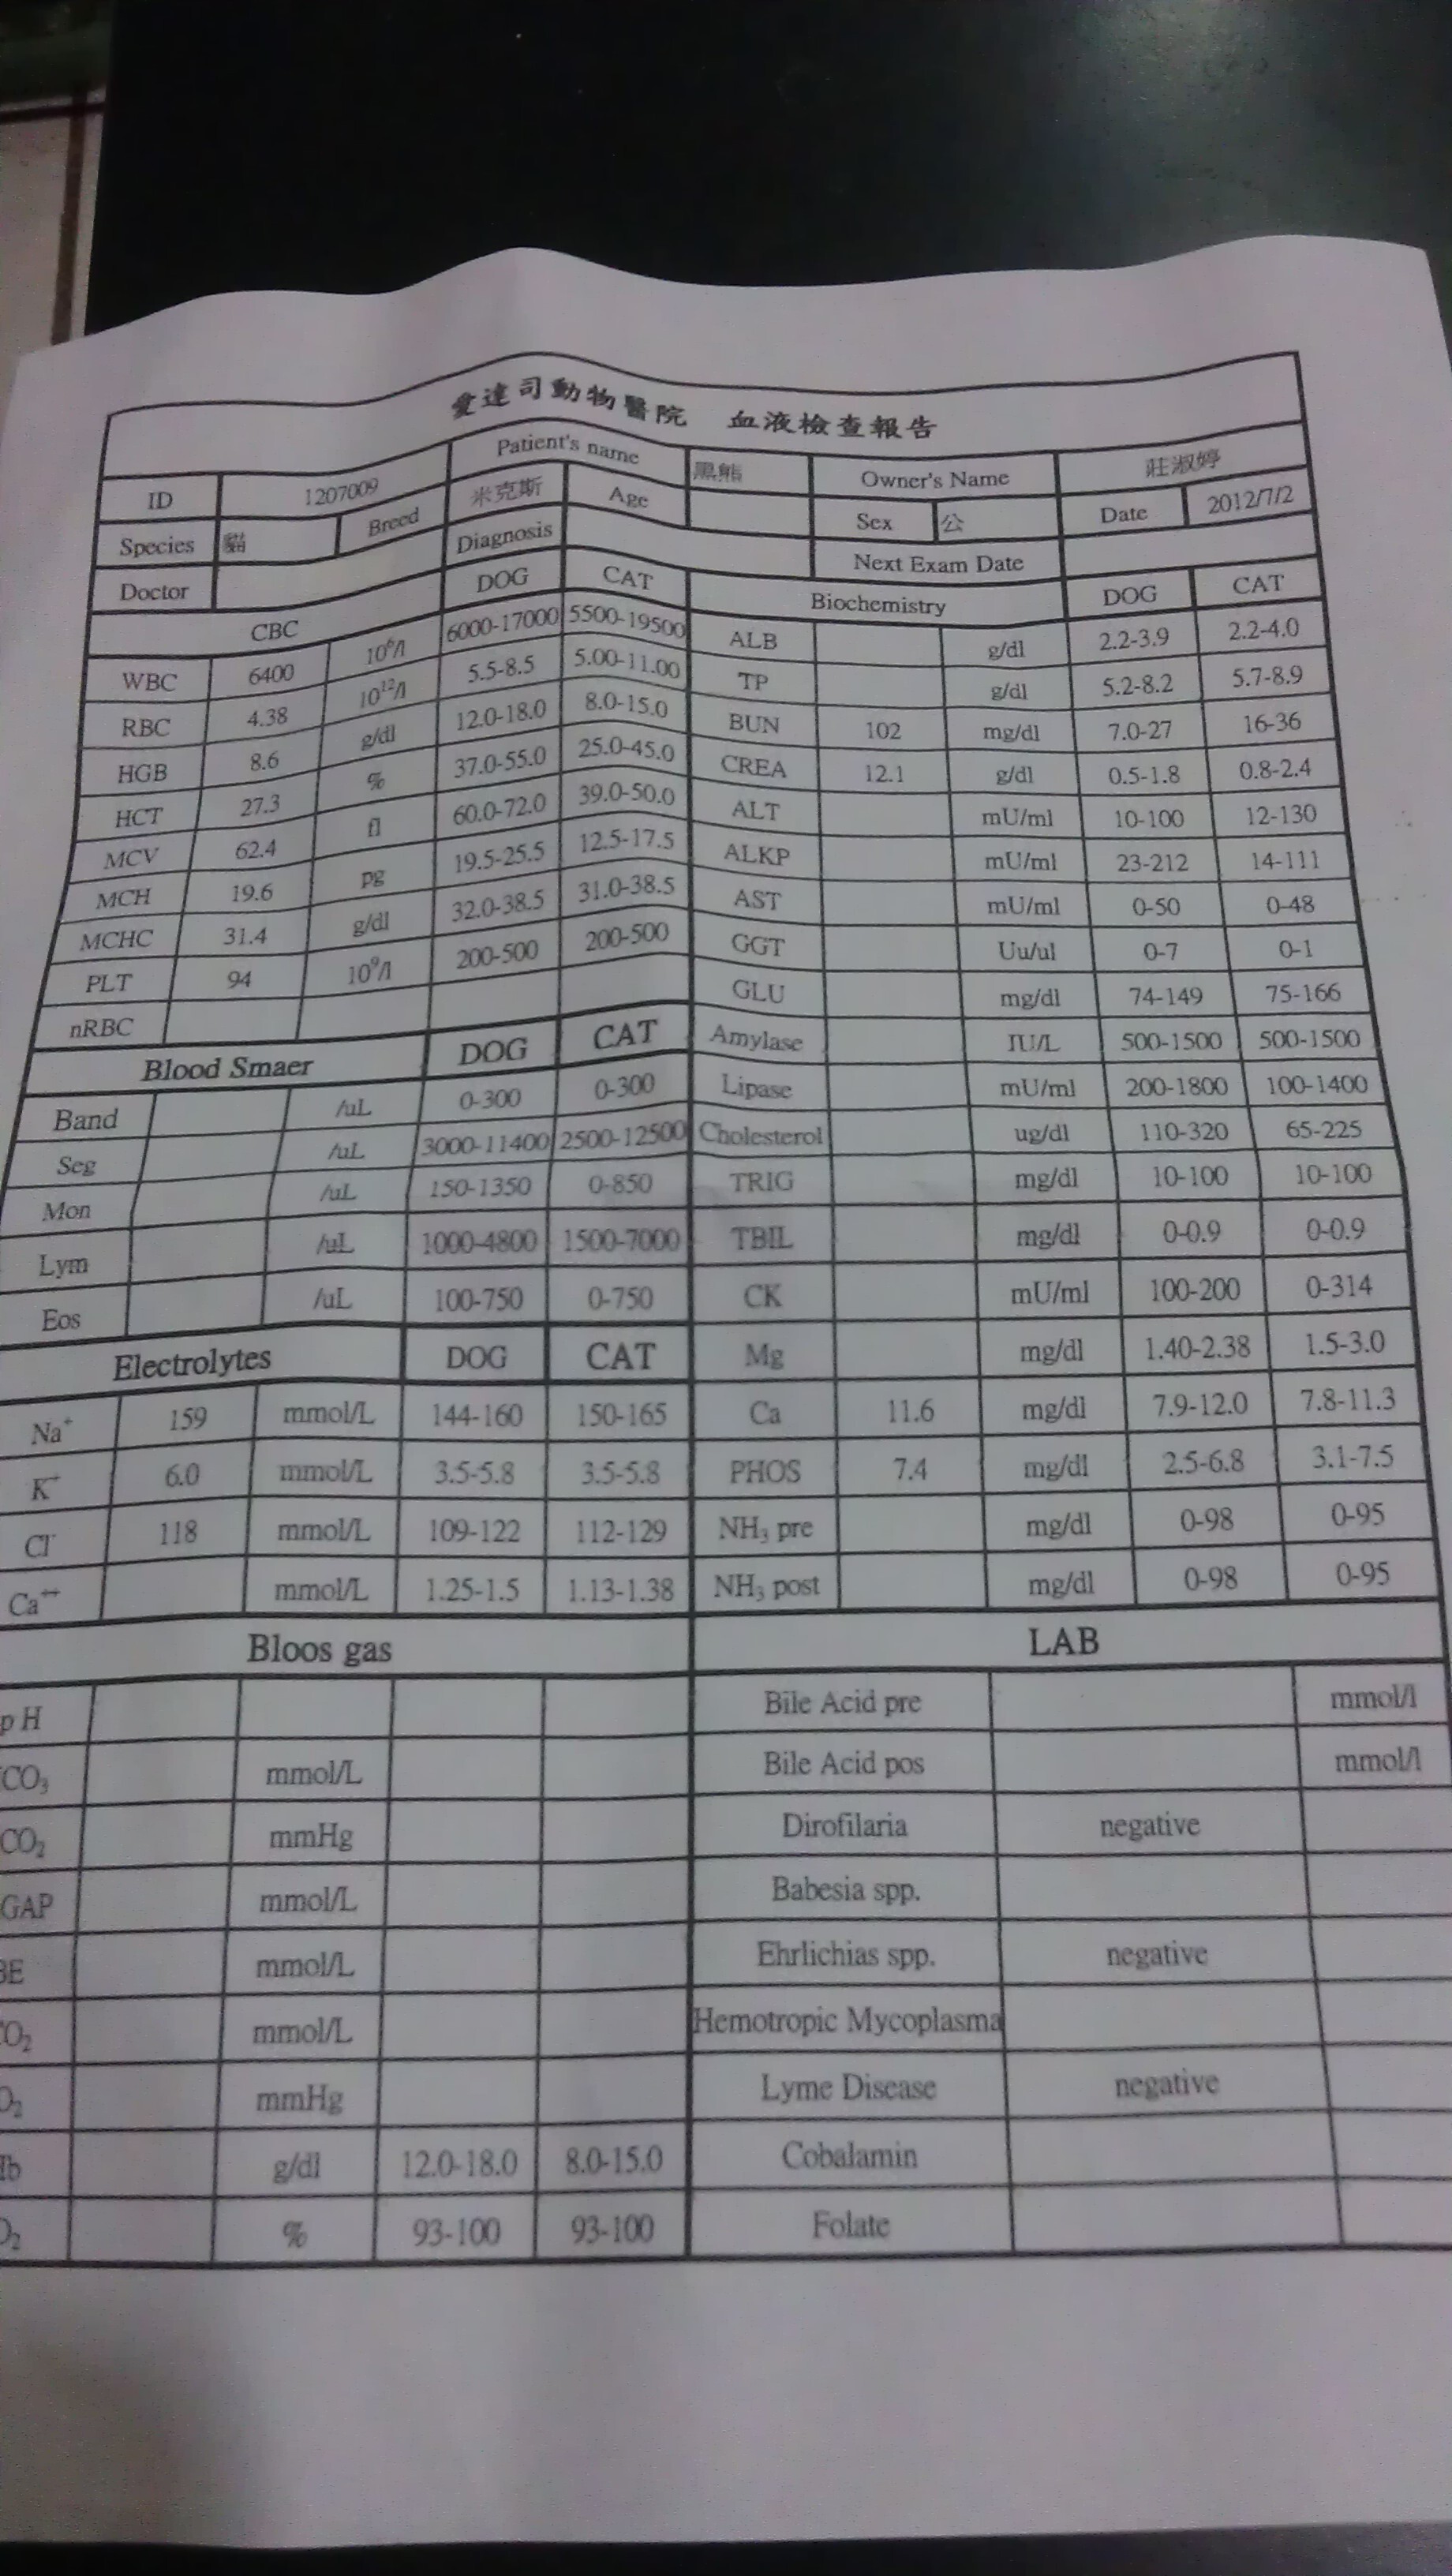 愛達司動物醫院 血液檢查報告
ID 1207009 Patient's name 黑熊 Owner's Name 莊淑婷
Species 貓 Breed 米克斯 Age Sex 公 Date 2012/7/2
Doctor Diagnosis Next Exam Date
CBC DOG CAT Biochemistry DOG CAT
WBC 6400 10⁶/l 6000-17000 5500-19500 ALB g/dl 2.2-3.9 2.2-4.0
RBC 4.38 10¹²/l 5.5-8.5 5.00-11.00 TP g/dl 5.2-8.2 5.7-8.9
HGB 8.6 g/dl 12.0-18.0 8.0-15.0 BUN 102 mg/dl 7.0-27 16-36
HCT 27.3 % 37.0-55.0 25.0-45.0 CREA 12.1 g/dl 0.5-1.8 0.8-2.4
MCV 62.4 fl 60.0-72.0 39.0-50.0 ALT mU/ml 10-100 12-130
MCH 19.6 pg 19.5-25.5 12.5-17.5 ALKP mU/ml 23-212 14-111
MCHC 31.4 g/dl 32.0-38.5 31.0-38.5 AST mU/ml 0-50 0-48
PLT 94 10⁹/l 200-500 200-500 GGT Uu/ul 0-7 0-1
nRBC GLU mg/dl 74-149 75-166
Blood Smaer DOG CAT Amylase IU/L 500-1500 500-1500
Band /uL 0-300 0-300 Lipase mU/ml 200-1800 100-1400
Seg /uL 3000-11400 2500-12500 Cholesterol ug/dl 110-320 65-225
Mon /uL 150-1350 0-850 TRIG mg/dl 10-100 10-100
Lym /uL 1000-4800 1500-7000 TBIL mg/dl 0-0.9 0-0.9
Eos /uL 100-750 0-750 CK mU/ml 100-200 0-314
Electrolytes DOG CAT Mg mg/dl 1.40-2.38 1.5-3.0
Na⁺ 159 mmol/L 144-160 150-165 Ca 11.6 mg/dl 7.9-12.0 7.8-11.3
K⁺ 6.0 mmol/L 3.5-5.8 3.5-5.8 PHOS 7.4 mg/dl 2.5-6.8 3.1-7.5
Cl⁻ 118 mmol/L 109-122 112-129 NH₃ pre mg/dl 0-98 0-95
Ca⁺⁺ mmol/L 1.25-1.5 1.13-1.38 NH₃ post mg/dl 0-98 0-95
Bloos gas LAB
pH Bile Acid pre mmol/l
CO₃ mmol/L Bile Acid pos mmol/l
CO₂ mmHg Dirofilaria negative
GAP mmol/L Babesia spp.
BE mmol/L Ehrlichias spp. negative
O₂ mmol/L Hemotropic Mycoplasma
O₂ mmHg Lyme Disease negative
Hb g/dl 12.0-18.0 8.0-15.0 Cobalamin
O₂ % 93-100 93-100 Folate